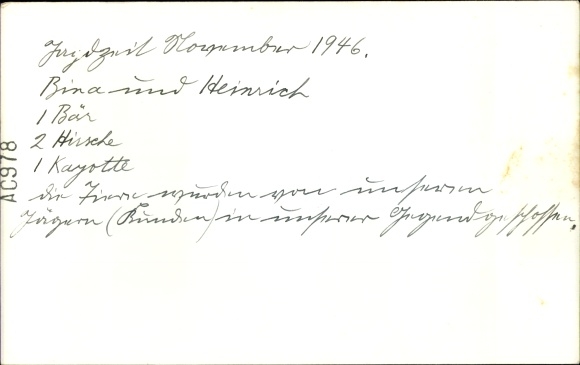 Jagdzeit November 1946.
Bina und Heinrich
1 Bär
2 Hirsche
1 Kayotte
die Tiere wurden von unseren
Jägern (Kunden) in unserer Gegend geschossen.
AC978